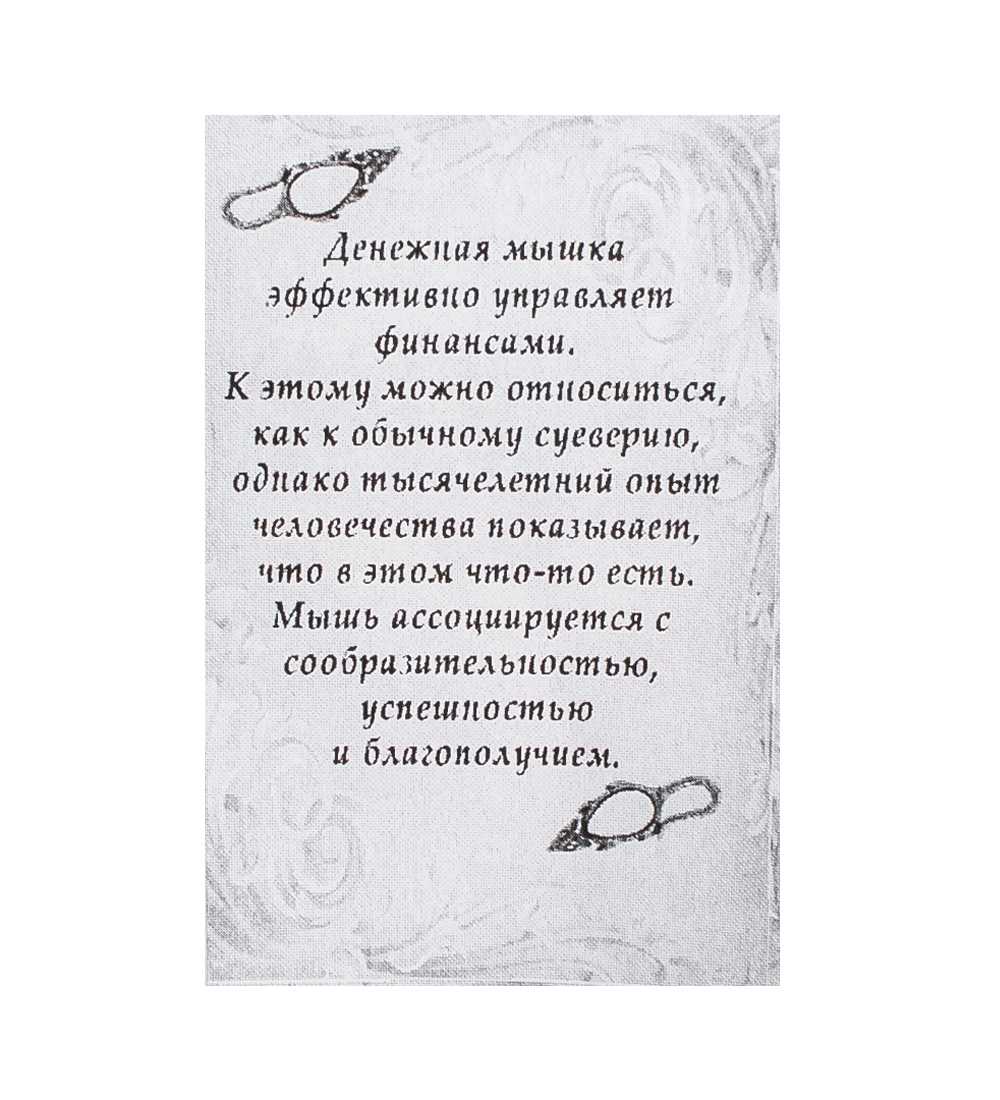 Денежная мышка
эффективно управляет
финансами.
К этому можно относиться,
как к обычному суеверию,
однако тысячелетний опыт
человечества показывает,
что в этом что-то есть.
Мышь ассоциируется с
сообразительностью,
успешностью
и благополучием.